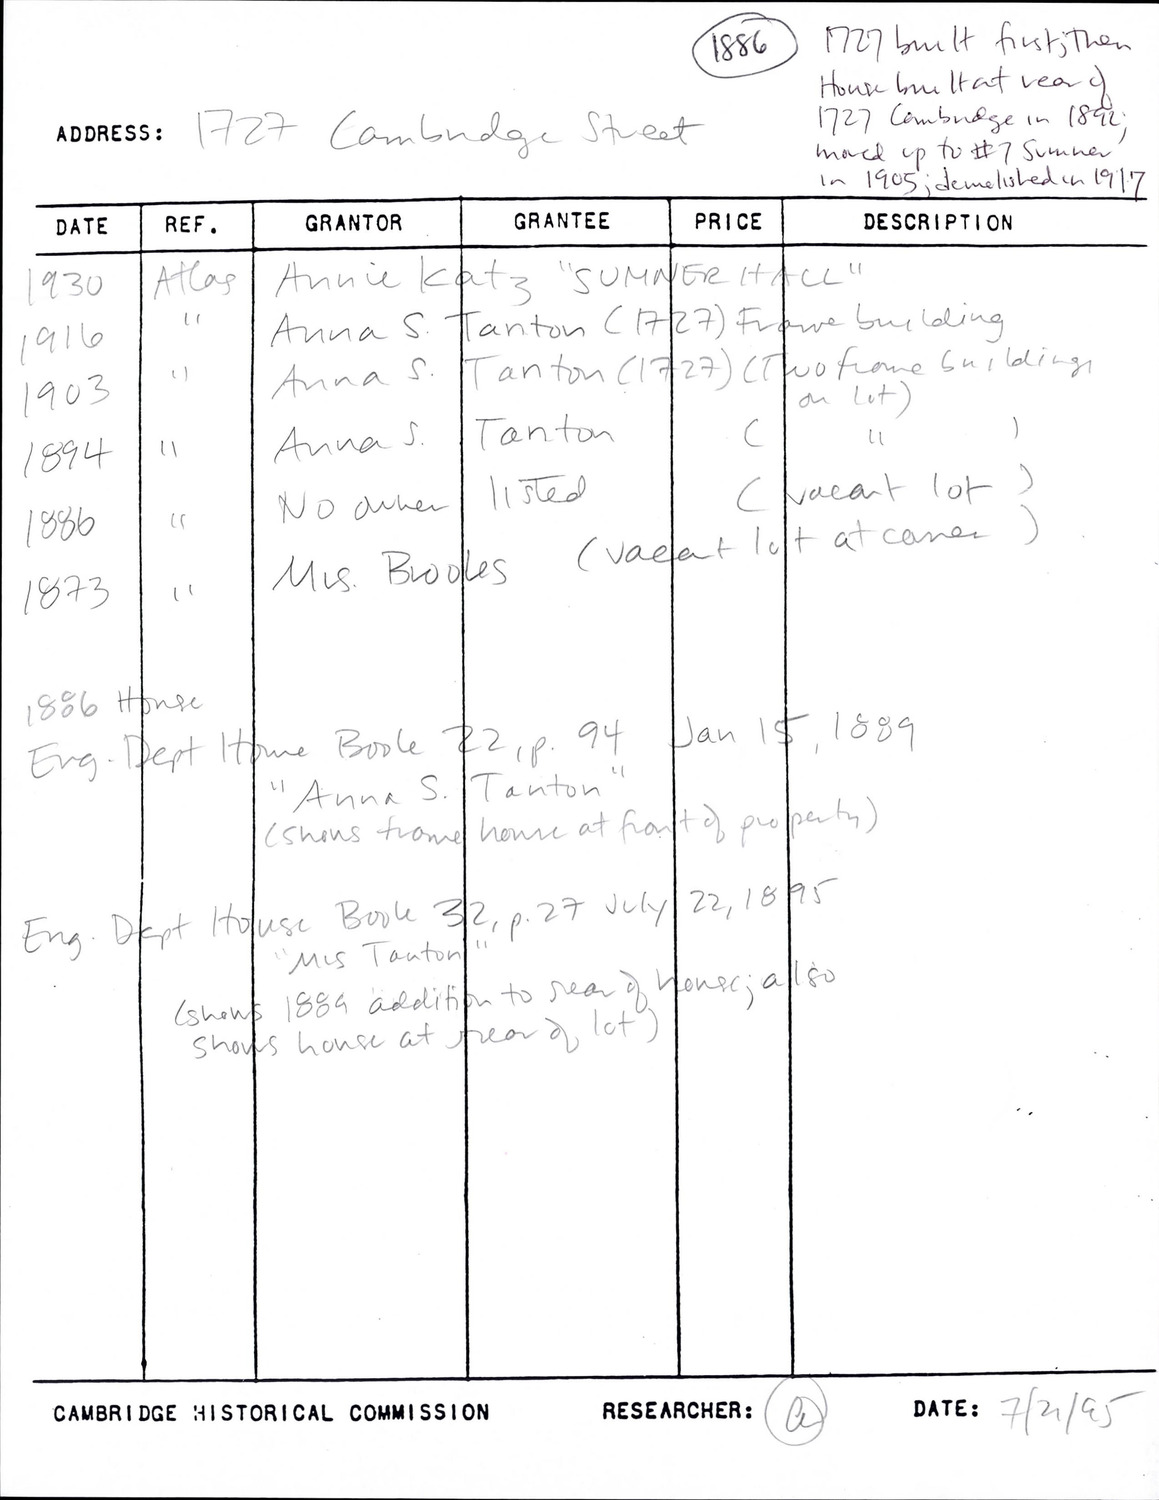 1886
1727 built first; then
House built at rear of
1727 Cambridge in 1892;
moved up to #7 Sumner
in 1905; demolished in 1917
ADDRESS: 1727 Cambridge Street
DATE REF. GRANTOR GRANTEE PRICE DESCRIPTION
1930 Atlas Annie Katz "SUMNER HALL"
1916 " Anna S. Tanton (1727) Frame building
1903 " Anna S. Tanton (1727) (Two frame buildings
on lot)
1894 " Anna S. Tanton ( " )
1886 " No owner listed (vacant lot)
1873 " Mrs. Brooks (vacant lot at corner)
1886 House
Eng. Dept Home Book 22, p. 94 Jan 15, 1889
"Anna S. Tanton"
(shows frame house at front of property)
Eng. Dept House Book 32, p. 27 July 22, 1895
"Mrs Tanton"
(shows 1889 addition to rear of house; also
shows house at rear of lot)
CAMBRIDGE HISTORICAL COMMISSION RESEARCHER: DATE: 7/21/95